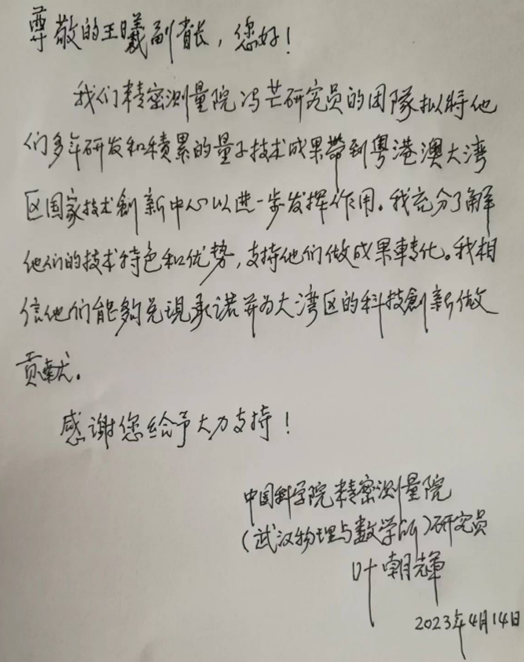 尊敬的王曦副省长，您好！
我们精密测量院冯芒研究员的团队拟将他
们多年研发和積累的量子技术成果帶到粤港澳大湾
区国家技术創新中心以进一步发挥作用。我充分了解
他们的技术特色和优势，支持他们做成果轉化。我相
信他们能夠兑現承诺并为大湾区的科技創新做
贡献。
感谢您给予大力支持！
中国科学院精密测量院
（武汉物理与数学所）研究员
叶朝輝
2023年4月14日